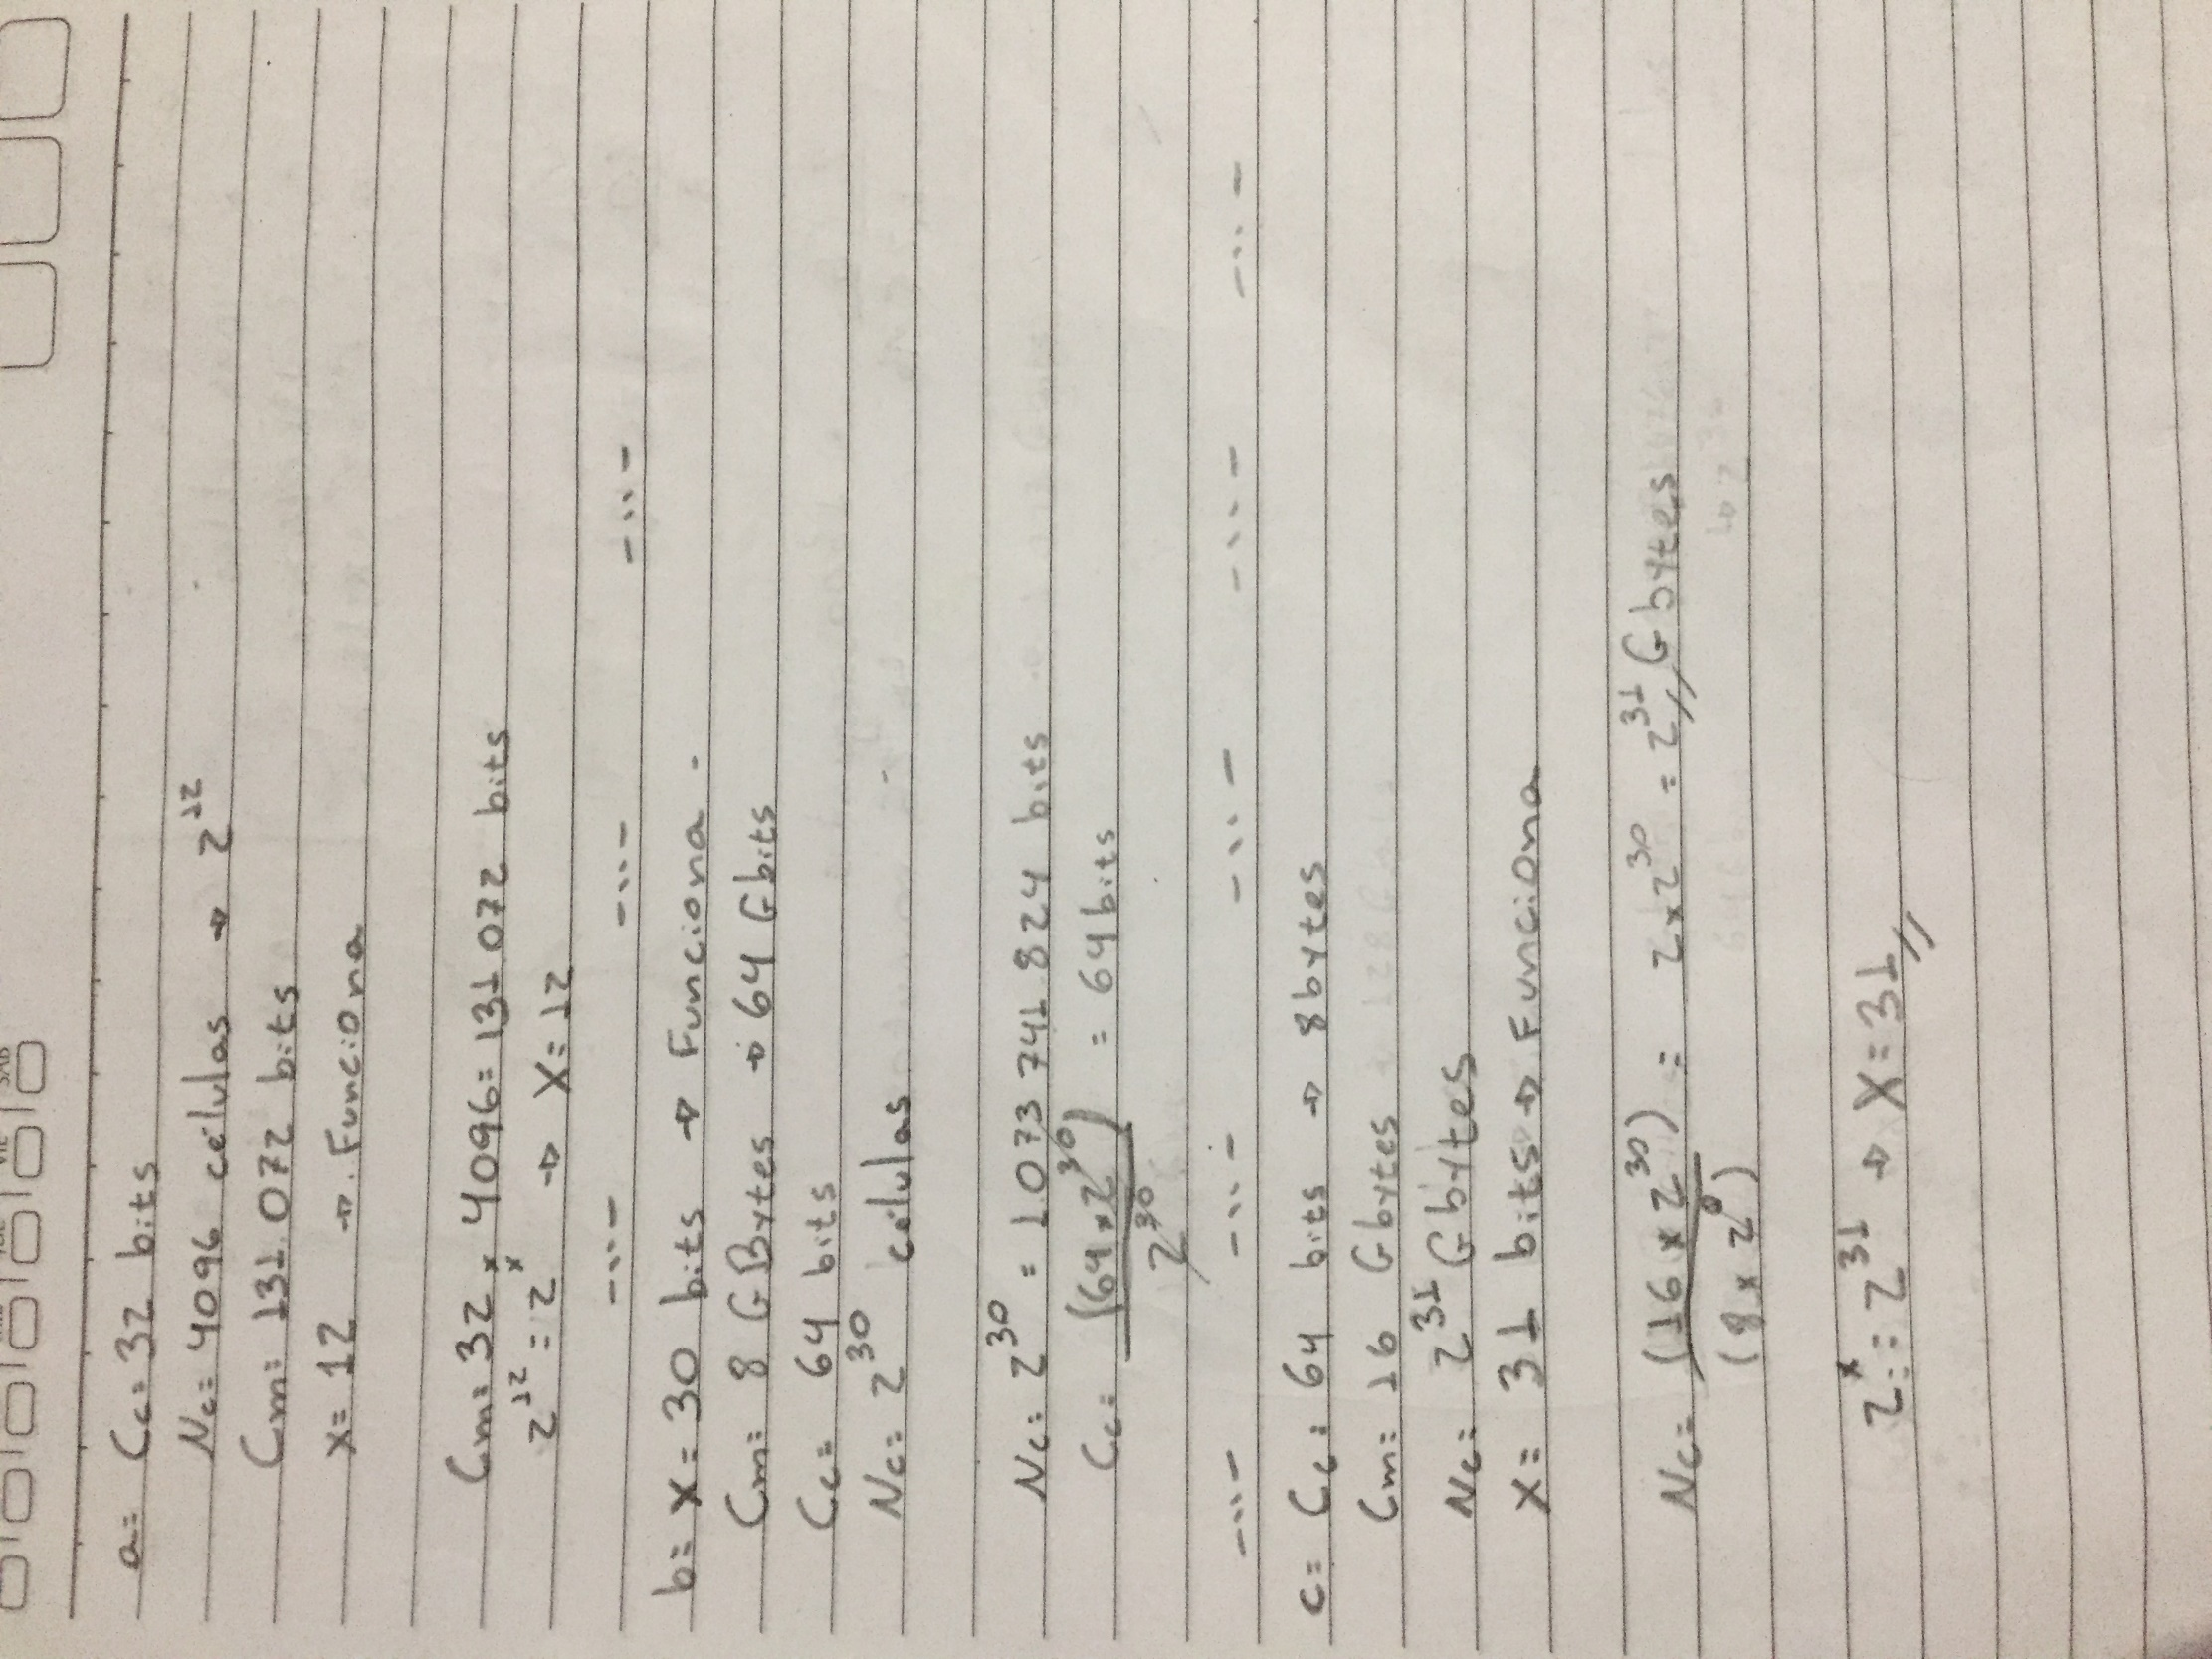 a= Cc= 32 bits
Nc= 4096 células → 2¹²
Cm= 131.072 bits
x= 12 → Funciona
Cm= 32 x 4096= 131072 bits
2¹² = 2ˣ → X=12
b= X= 30 bits → Funciona.
Cm= 8 GBytes → 64 Gbits
Cc= 64 bits
Nc= 2³⁰ células
Nc= 2³⁰ = 1073 741 824 bits
Cc= (64 x 2³⁰) = 64bits
2³⁰
c= Cc= 64 bits → 8bytes
Cm= 16 Gbytes
Nc= 2³¹ Gbytes
X= 31 bits → Funciona
Nc= (16 x 2³⁰) = 2x2³⁰ = 2³¹ Gbytes
(8 x 2⁰)
2ˣ = 2³¹ → X=31